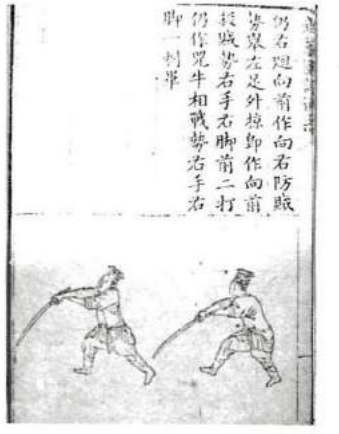 仍右廻向前作向右防賊
勢擧左足外掠卽作向前
殺賊勢右手右脚前二打
仍作兕牛相戰勢右手右
脚一刺畢